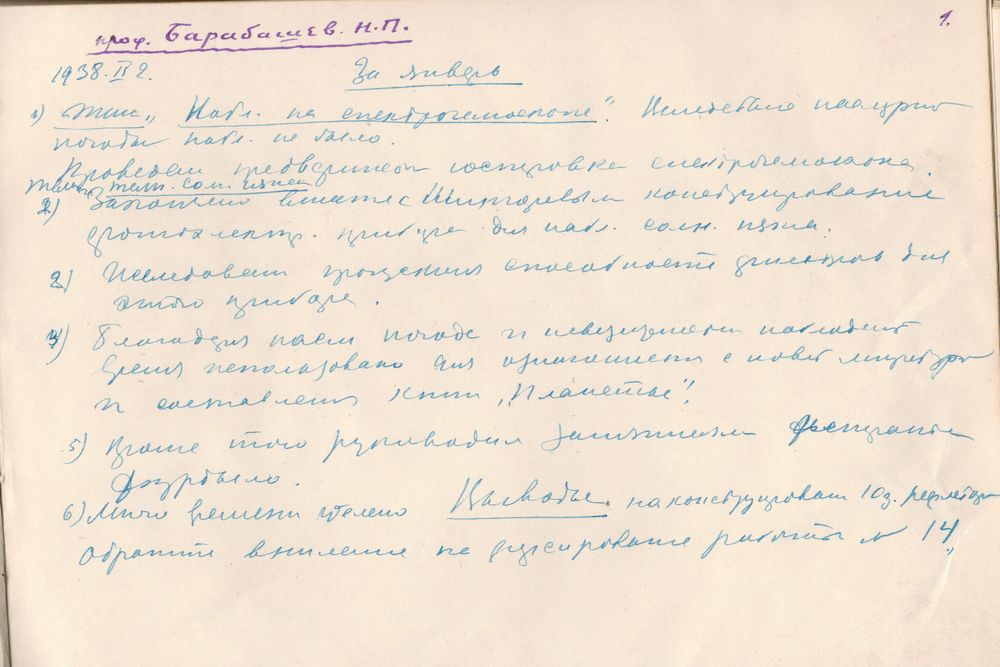 проф. Барабашев. Н.П.
1.
1938. II 2. За январь
1) Тема „Набл. на спектрогелиоскопе“. Вследствие пасмурной
погоды набл. не было.
Проведена предварител юстировка спектрогелиоскопа
Тема
2) Закончено вместе с конструирование
фотоэлектр. прибора для набл. солн.
2) Исследован способности фильтров для
этого прибора.
3) Благодаря пасм погоде и невозможности наблюдений
время использовано для ознакомления с новой литературой
и составления книги „Планеты“.
5) Кроме того руководил занятиями аспиранта
6) Много времени уделено Выводы. на конструирован 10д. рефлектора
обратить внимание на форсирование работы № 14